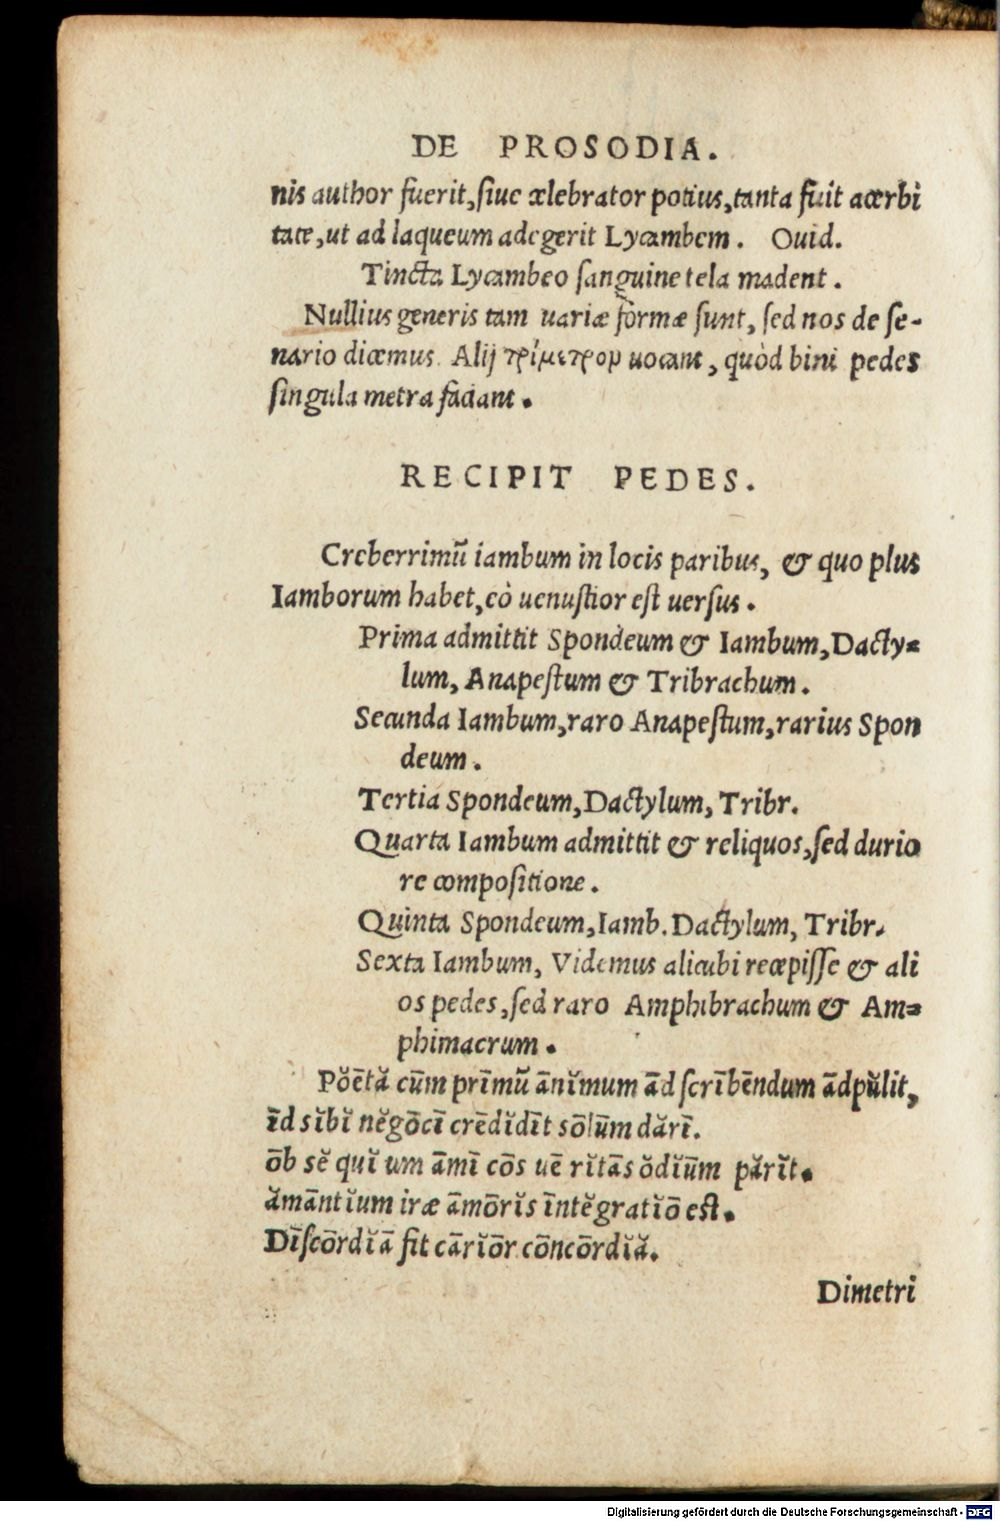 DE PROSODIA.
nis author fuerit, siue celebrator potius, tanta fuit acerbi
tate, ut ad laqueum adegerit Lycambem. Ouid.
Tincta Lycambeo sanguine tela madent.
Nullius generis tam uariæ formæ sunt, sed nos de se-
nario dicemus. Alij τρίμετρον uocant, quòd bini pedes
singula metra faciant.
RECIPIT PEDES.
Creberrimũ iambum in locis paribus, & quo plus
Iamborum habet, eò uenustior est uersus.
Prima admittit Spondeum & Iambum, Dacty-
lum, Anapestum & Tribrachum.
Secunda Iambum, raro Anapestum, rarius Spon
deum.
Tertia Spondeum, Dactylum, Tribr.
Quarta Iambum admittit & reliquos, sed durio
re compositione.
Quinta Spondeum, Iamb. Dactylum, Tribr.
Sexta Iambum, Videmus alicubi recepisse & ali
os pedes, sed raro Amphibrachum & Am-
phimacrum.
Pŏētă cūm prīmŭ ānĭmum ād scrībēndum ādpŭlit,
īd sĭbĭ nĕgōcī crēdĭdīt sōlūm dărī.
ōb sĕ quĭ um āmī cōs uē rĭtās ŏdĭūm părĭt.
ămāntĭum iræ āmōrĭs īntĕgratĭō est.
Dīscōrdĭā fit cārĭōr cōncōrdĭă.
Dimetri
Digitalisierung gefördert durch die Deutsche Forschungsgemeinschaft - DFG